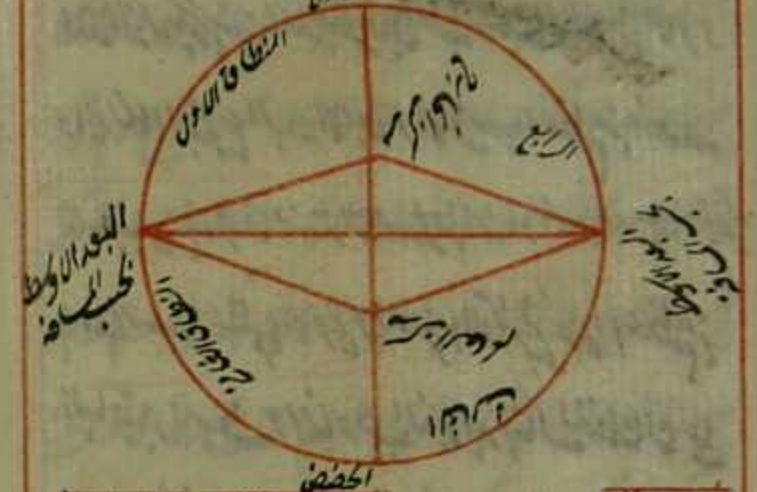 النطاق الاول
مركز الخارج
الرابع
البعد الاوسط
بحسب المسافة
البعد الاوسط
بحسب المسافة
النطاق الثاني
مركز العالم
الثالث
الحضيض